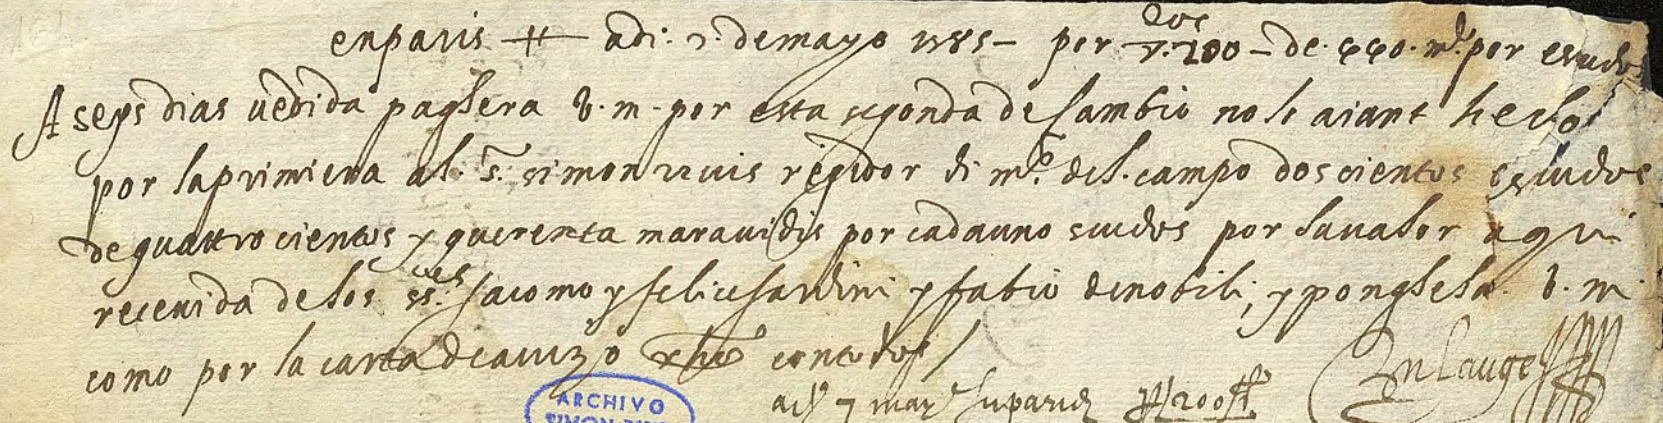 en paris + adi. 2. de mayo 1585 – per dos
▽. 200 – de. 440. mrs. por escudo
A seys dias vedida paghera V. m. por esta segonda de cambio no lo aiant hecho
por la primiera al. S. simon ruis regidor di ma. del. campo doscientos escudos
de quattrocientos y querenta maravidis por cada uno scudos por la valor aqui
recevida de los ss.res Jacomo y felice sardini y fabio de nobili, y ponghela. V. m.
como por la carta de avizo xpo con todos /
200
ARCHIVO
SIMON RUIZ